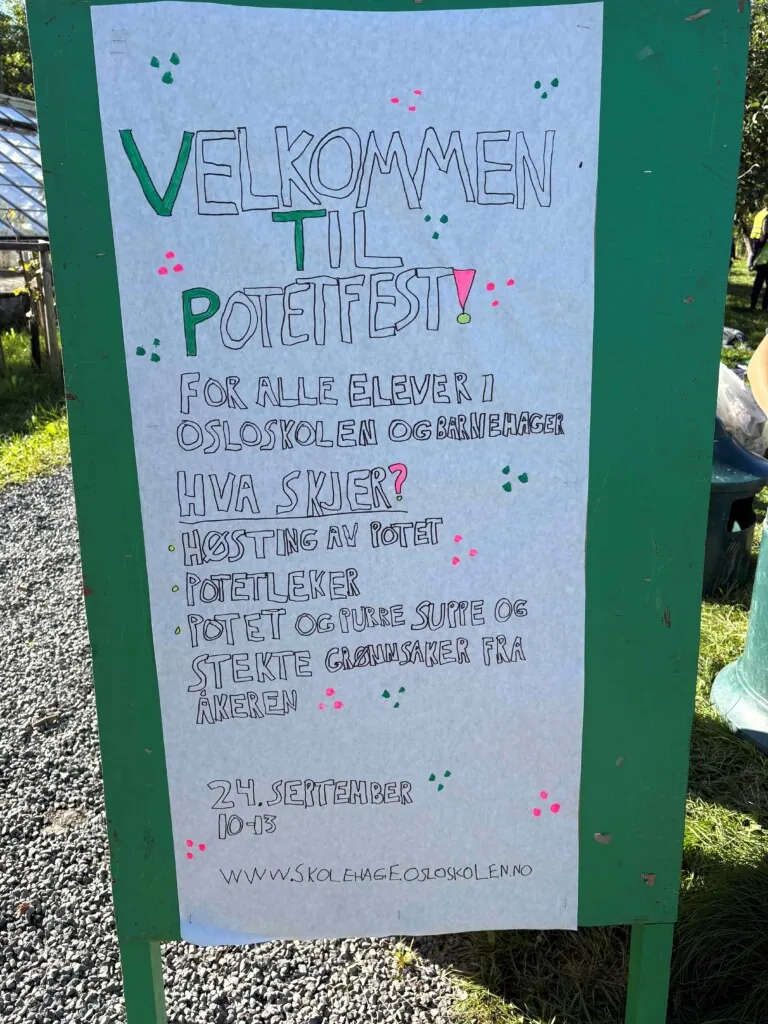 VELKOMMEN
TIL
POTETFEST!
FOR ALLE ELEVER I
OSLOSKOLEN OG BARNEHAGER
HVA SKJER?
• HØSTING AV POTET
• POTETLEKER
• POTET OG PURRE SUPPE OG
STEKTE GRØNNSAKER FRA
ÅKEREN
24. SEPTEMBER
10-13
WWW.SKOLEHAGE.OSLOSKOLEN.NO